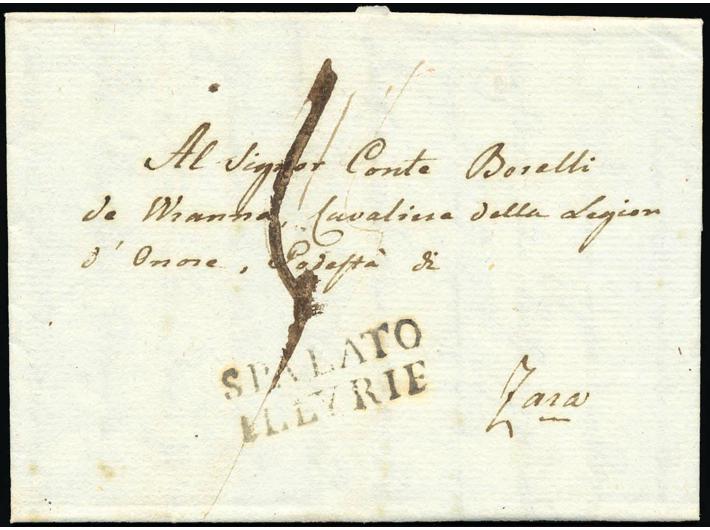 Al Signor Conte Borelli
de Wranna, Cavaliere della Legion
d'Onore, Podestà di
SPALATO
ILLYRIE
Zara